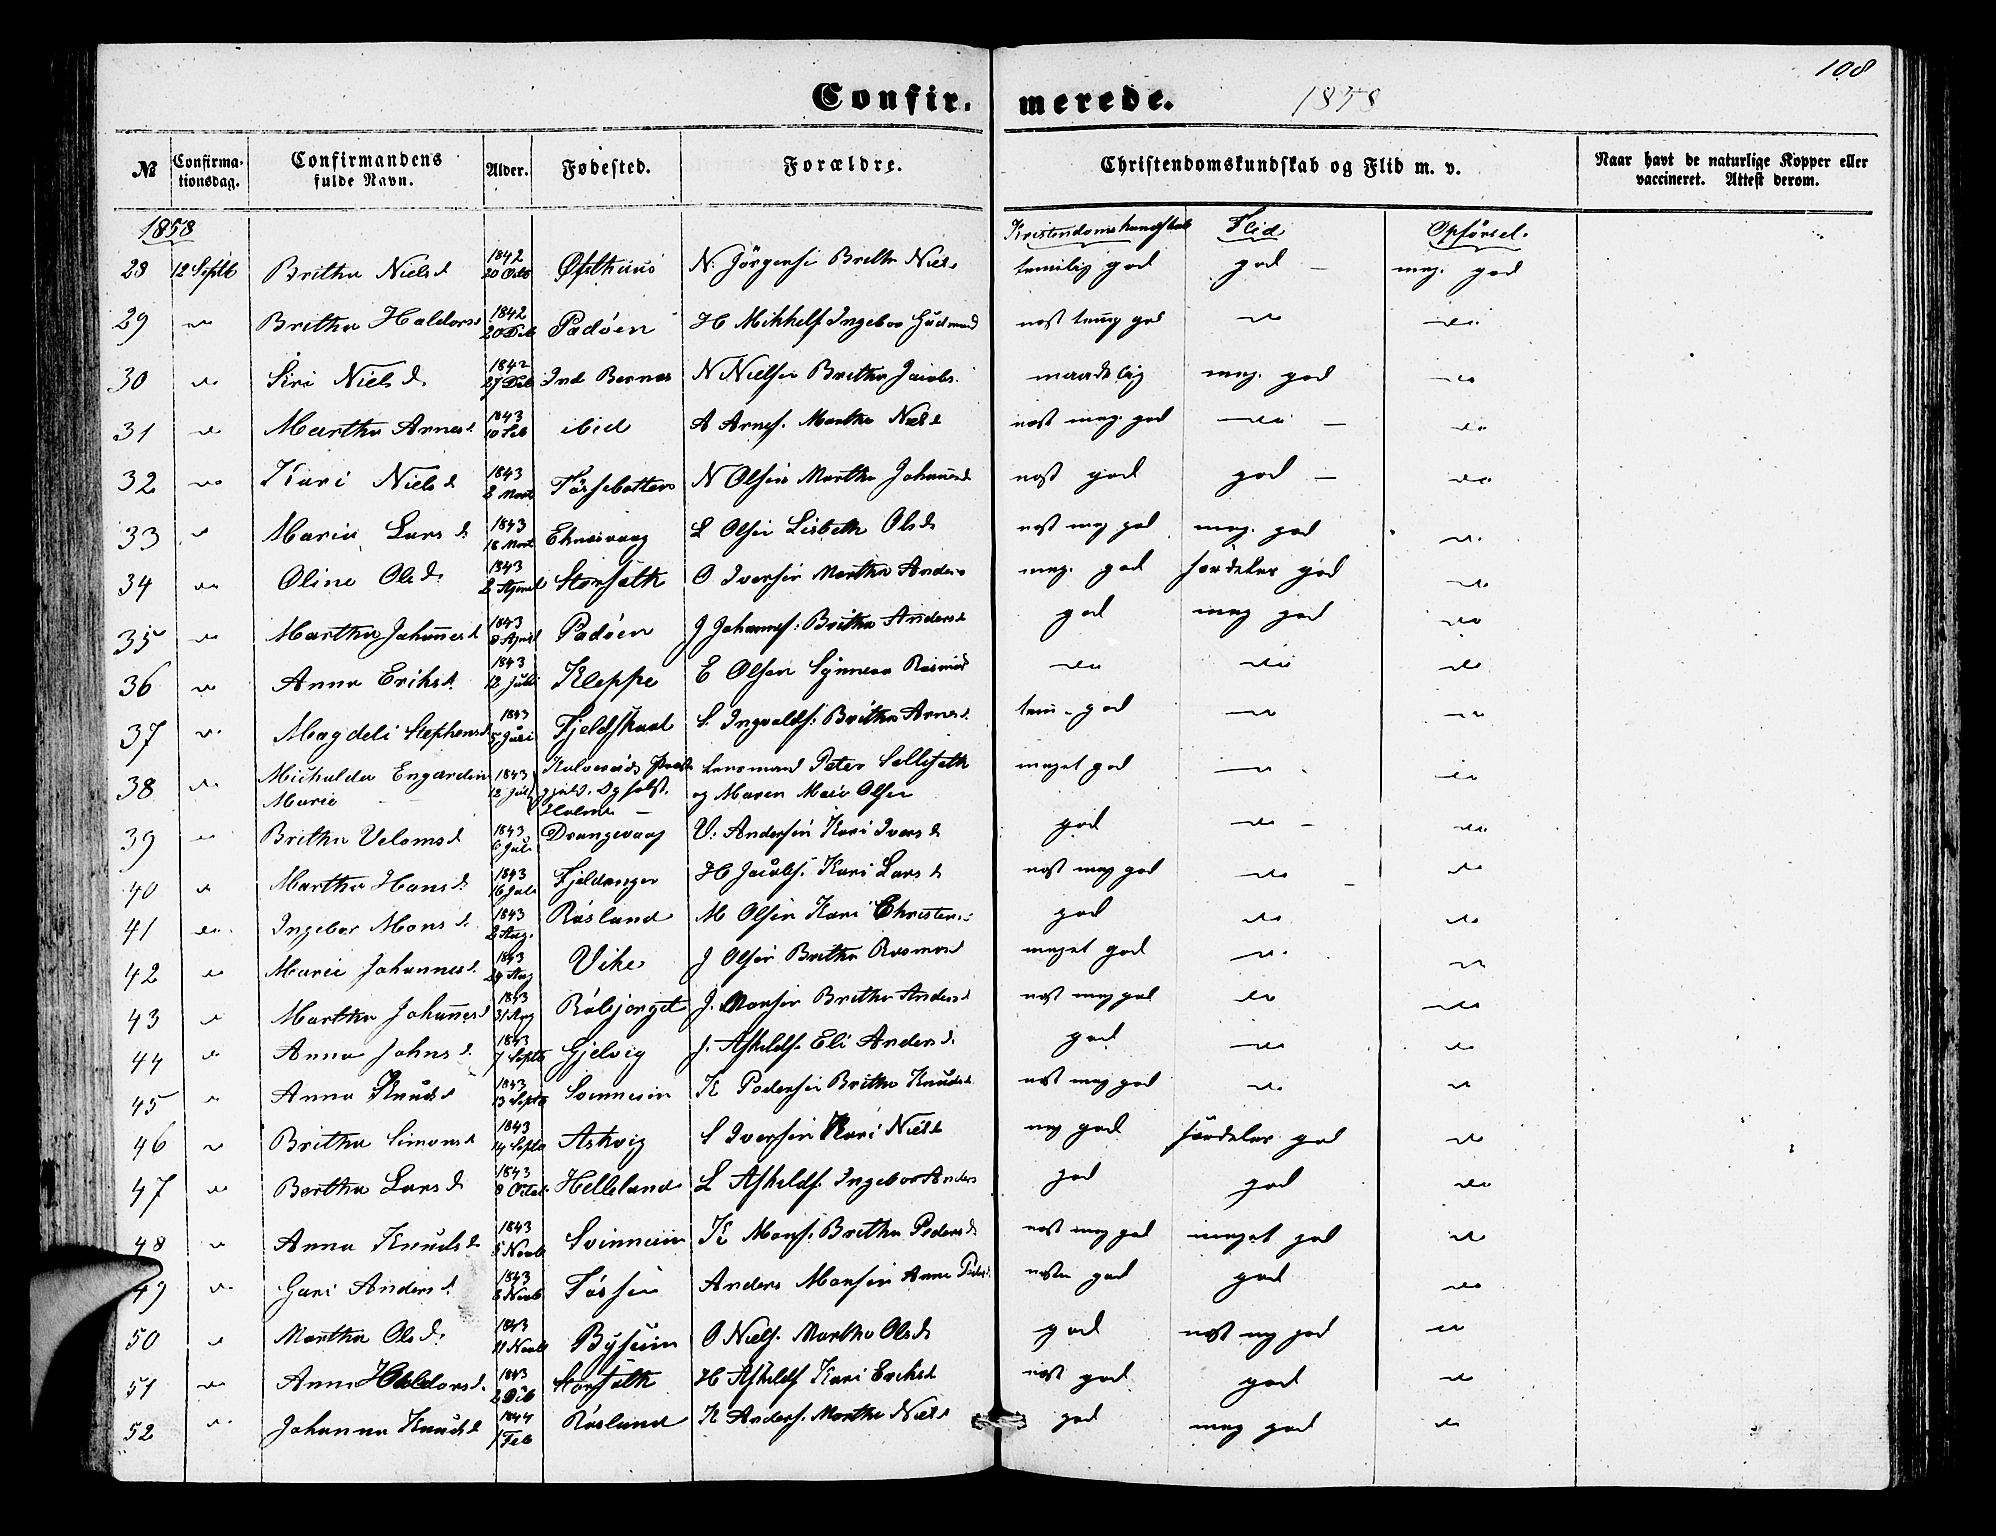 108
Confir. merede. 1858
№ Confirma-tionsdag. Confirmandens fulde Navn. Alder. Fødested. Forældre. Christendomskundskab og Flid m. v. Naar havt de naturlige Kopper eller vaccineret. Attest derom.
1858 Kristendomskundskab Flid Opførsel.
28 12 Septb Britha Nielsd 1842 20 Octb Østhuus N. Jörgens. Britha Niels temelig god god meg. god
29 do Britha Haldorsd 1842 20 Deb Padöen H Mikkels. Ingebor Gudmund nost tem god do do
30 do Siri Nielsd. 1842 27 Deb Ind Bernes N Nielsen Britha Jacobs. maadelig meg. god do
31 do Martha Arnesd. 1843 10 Feb ibid A Arnes. Martha Nielsd nost meg. god do do
32 do Kari Nielsd 1843 2 Mart Fössebotten N Olsen Martha Johannesd nost god god do
33 do Marie Larsd 1843 18 Mart Eknesvaag L Olsen Lisbeth Olsd nost meg god meg. god do
34 do Oline Olsd. 1843 2 April Storsæth O Iversen Martha Anders meg. god særdeles god do
35 do Martha Johannesd 1843 8 April Padöen J Johannes. Britha Andersd god meg god do
36 do Anna Eriksd. 1843 12 Juli Kleppe E Olsen Synneva Rasmusd do do do
37 do Magdeli Stephensd 1843 5 Juni Fjeldskaal S. Ingvalds. Britha Arnesd. tem. god do do
38 do Michalda Engardine Marie 1843 12 Juli Kalveseids Præstegjeld. Holme Lensmand Peter Sellesæth og Maren Marie Olsen meget god do do
39 do Britha Velomsd 1843 6 Juli Drangevaag V. Andersen Kari Iversd god do do
40 do Martha Hansd. 1843 16 Juli Fjeldanger H Jacobs. Kari Larsd nost meg god do do
41 do Ingebor Monsd. 1843 2 Aug. Røsland M Olsen Kari Christens god do do
42 do Marie Johannesd. 1843 29 Aug Vike J Olsen Britha Rasmusd meget god do do
43 do Martha Johannesd 1843 31 Aug Röbjorget J. Monsen Britha Andersd nost meg god do do
44 do Anna Johnsd. 1843 7 Septb Gjelvig J. Askelds. Eli Andersd. god do do
45 do Anna Knudsd 1843 13 Septb Svinnesin K Pedersen Britha Knudsd. nost meg god do do
46 do Britha Simonsd 1843 14 Septb Askvig S Iversen Kari Nielsd meg god særdeles god do
47 do Bertha Larsd. 1843 8 Octob Helleland L Askelds. Ingebor Anders god god do
48 do Anna Knudsd 1843 5 Novb Svinnesin K Mons. Britha Pedersd nost meg god meget god do
49 do Guri Andersd 1843 8 Novb Fössen Anders Monsen Anne Peders. nosten god god do
50 do Martha Olsd. 1843 11 Novb Bysein O Niels. Martha Olsd god nost meg god do
51 do Anna Haldorsd. 1843 2 Deb Storsæth H Askelds Kari Eriksd nost god god do
52 do Johanna Knudsd 1844 1 Feb Røsland K Anders. Martha Nielsd god meg god do